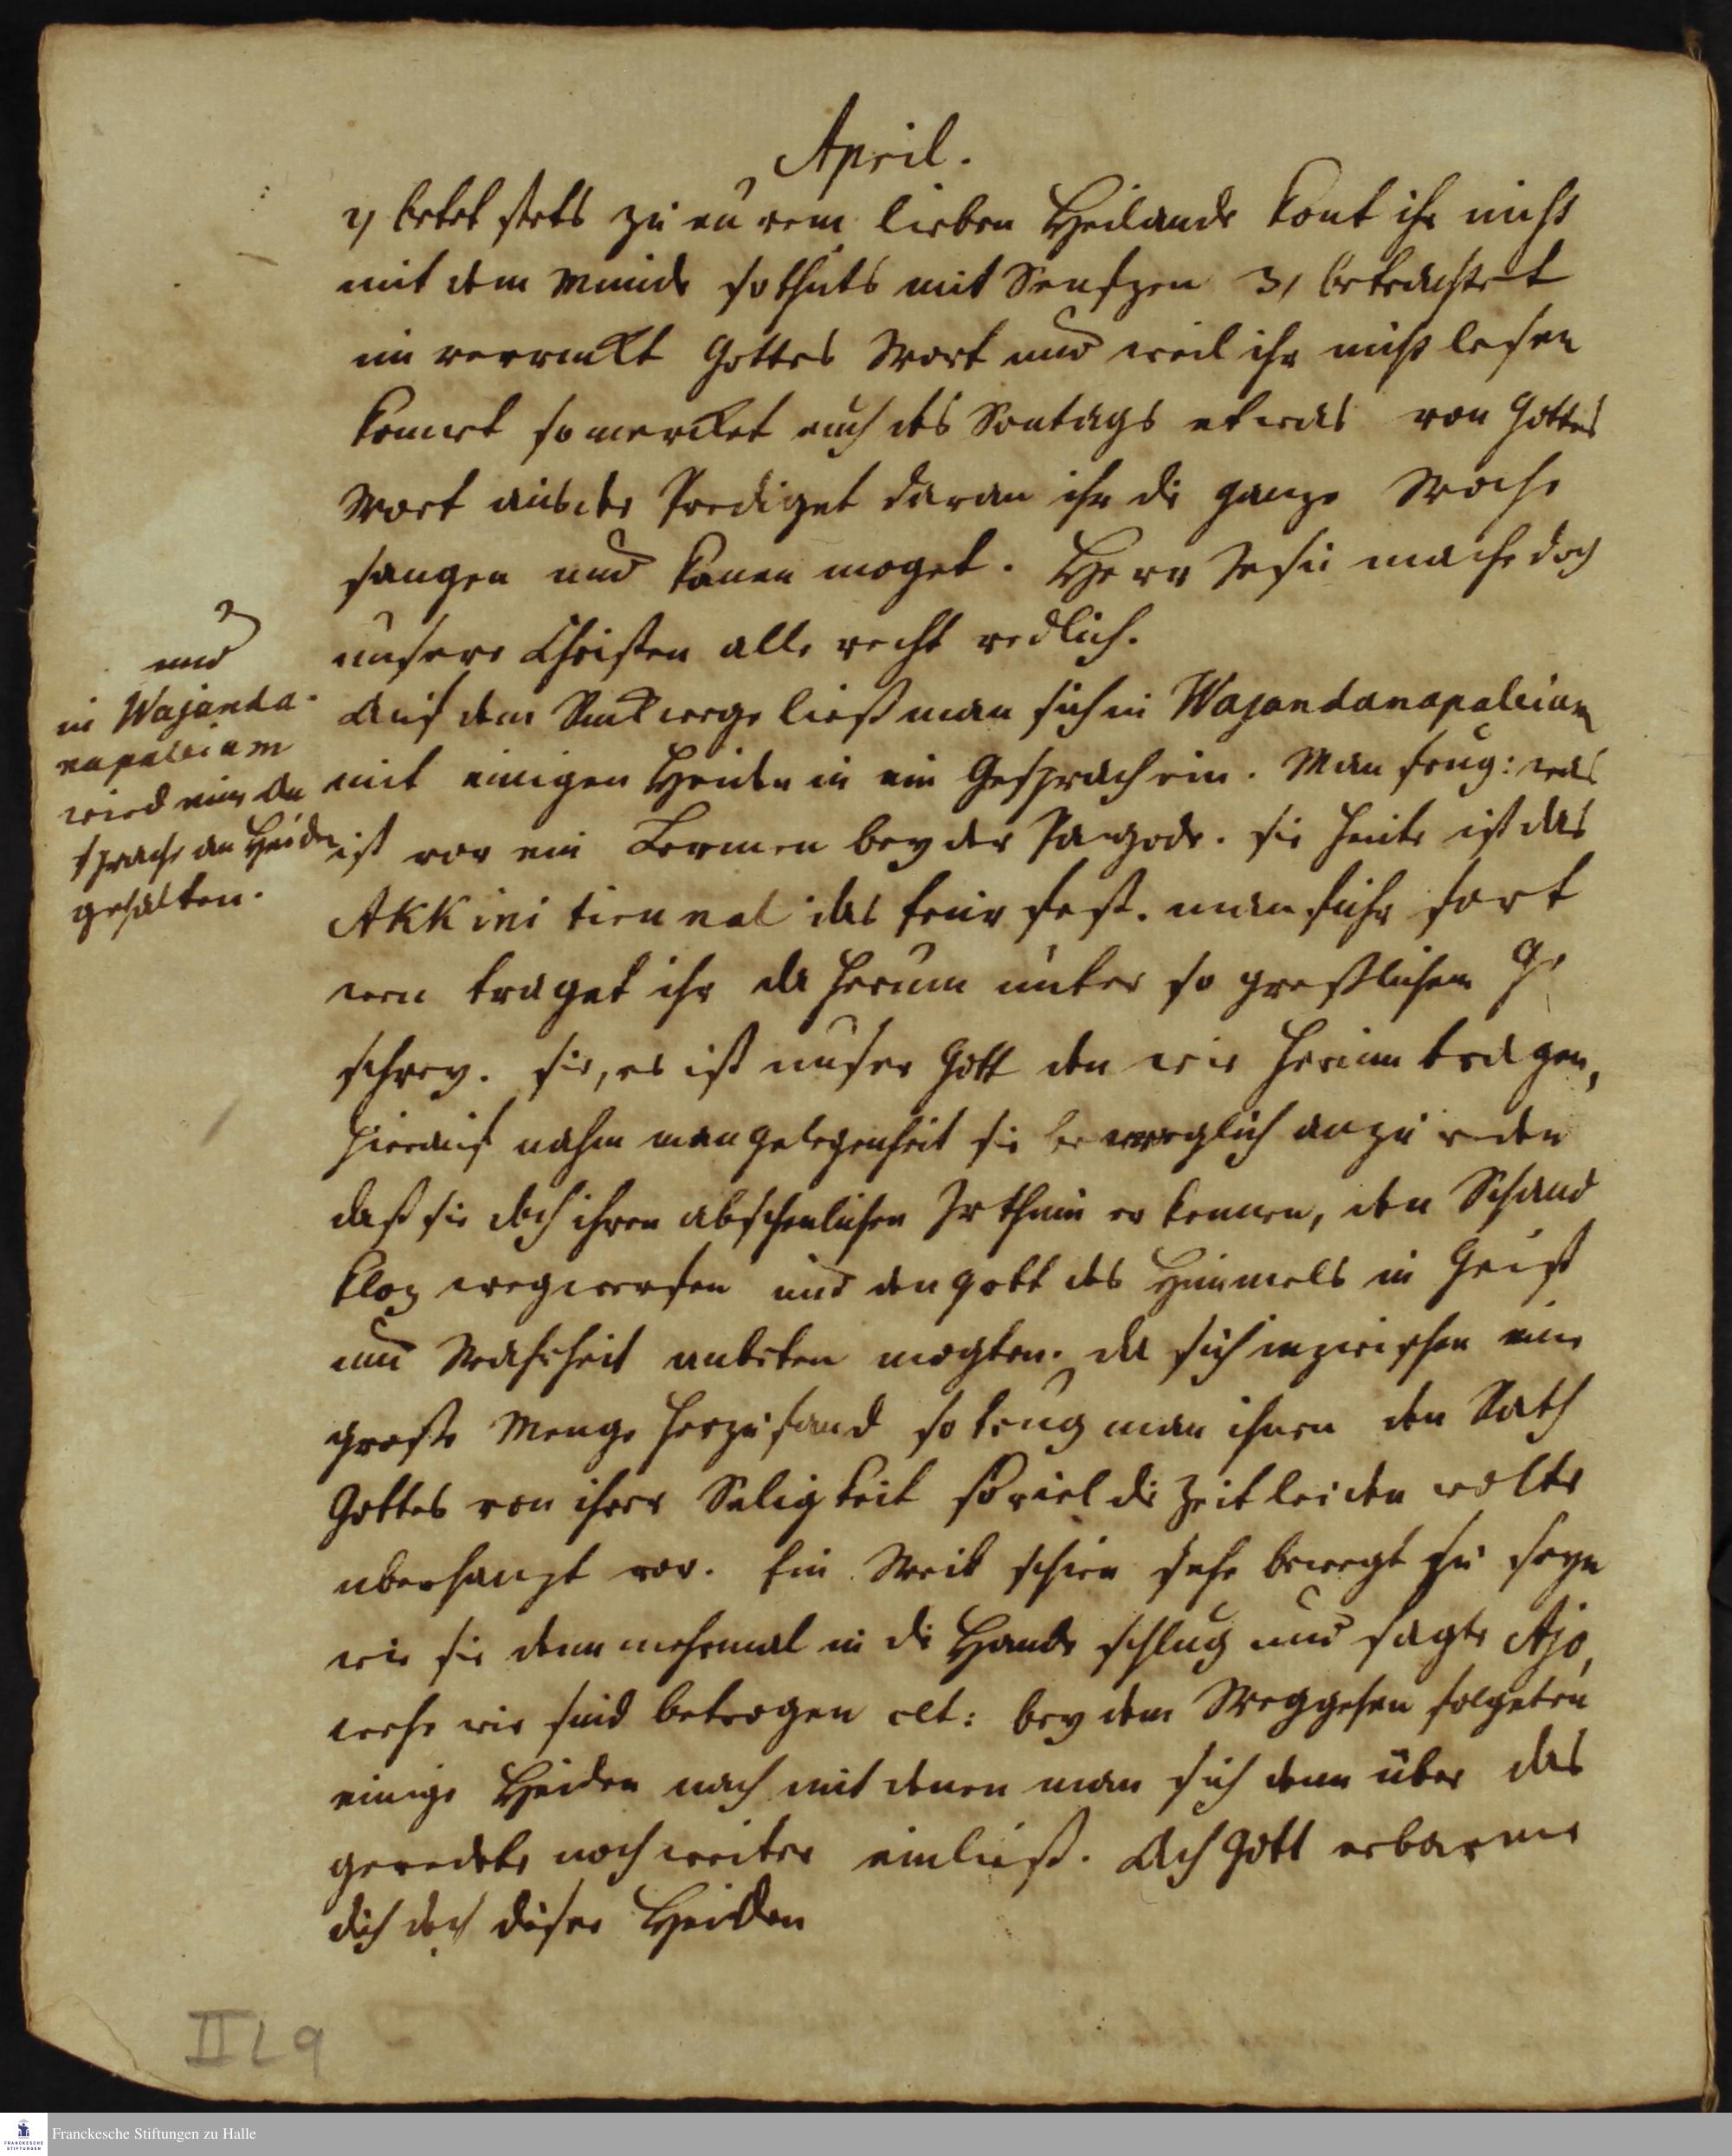 April.
2, betet stets zu eurem lieben Heilande kont ihr nicht
mit dem Munde so thuts mit Seufzen 3, betrachtet
im verruckt Gottes Wort und weil ihr nicht lesen
konnet so mercket euch des Sontags etwas von Gottes
Wort aus der Prediget daran ihr die ganze Woche
saugen und kauen moget. Herr Jesu mache doch
unsere Christen alle recht redlich.
und
in Wajanda-
napalleiam
wird eine An
sprache an Heiden
gehalten.
Auf dem Rukwege ließ man sich in Wajandanapaleiam
mit einigen Heiden in ein Gesprach ein. Man frug: was
ist vor ein Lermen bey der Pagode. sie heute ist das
AKKini tirunal das feur fest. man fuhr fort
wen traget ihr da herum unter so greßlichem Ge
schrey. sie, es ist unser Gott den wir herum tragen,
hierauf nahm man gelegenheit sie beweglich anzureden
daß sie doch ihren abscheulichen Irthum erkennen, den Schand
kloz wegwerfen und den gott des Himmels in Geist
und Wahrheit anbeten mogten. da sich inzwischen eine
große Menge herzu fand so trug man ihnen den Rath
Gottes von ihrer Seligkeit so viel die Zeit leiden wolte
uberhaupt vor. Ein Weib schien sehr bewegt zu seyn
wie sie denn mehrmal in die Hande schlug und sagte Ajo,
wehe wir sind betrogen ett: bey dem Weggehen folgeten
einige Heiden nach mit denen man sich denn über das
geredete noch weiter einließ. Ach Gott erbarme
dich doch dieser Heiden
II L 9
Franckesche Stiftungen zu Halle